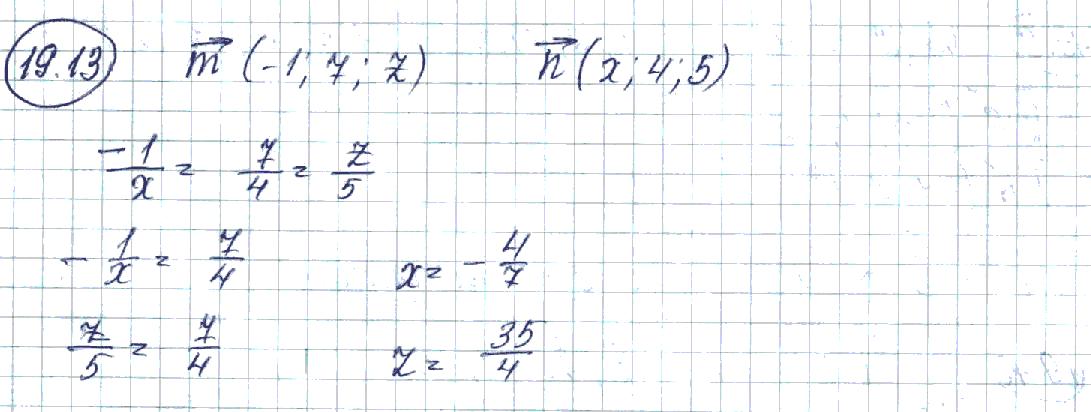 19.13 m⃗ (-1; 7; z) n⃗ (x; 4; 5)
-1/x = 7/4 = z/5
-1/x = 7/4 x = -4/7
z/5 = 7/4 z = 35/4